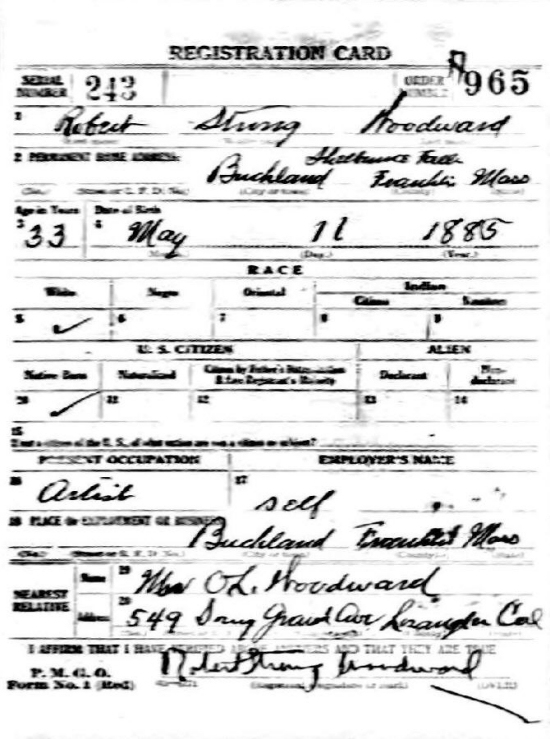 REGISTRATION CARD
SERIAL NUMBER 243 ORDER NUMBER A965
1 Robert Strong Woodward
2 PERMANENT HOME ADDRESS: Shelburne Falls
Buckland Franklin Mass
(No.) (Street or R. F. D. No.) (City or town) (County) (State)
Age in Years Date of Birth
3 33 4 May 11 1885
(Month.) (Day.) (Year.)
RACE
White Negro Oriental Indian
Citizen Noncitizen
5 ✓ 6 7 8 9
U. S. CITIZEN ALIEN
Native Born Naturalized Citizen by Father's Naturalization Declarant Non-
Before Registrant's Majority declarant
10 ✓ 11 12 13 14
15
If not a citizen of the U. S., of what nation are you a citizen or subject?
PRESENT OCCUPATION EMPLOYER'S NAME
16 Artist 17 self
18 PLACE OF EMPLOYMENT OR BUSINESS
Buckland Franklin Mass
(No.) (Street or R. F. D. No.) (City or town) (County) (State)
NEAREST RELATIVE
Name 19 Mrs O. L. Woodward
Address 20 549 Grand Ave Cal
I AFFIRM THAT I HAVE VERIFIED ABOVE ANSWERS AND THAT THEY ARE TRUE
P. M. G. O.
Form No. 1 (Red) Robert Strong Woodward
(Registrant's signature or mark) (OVER)